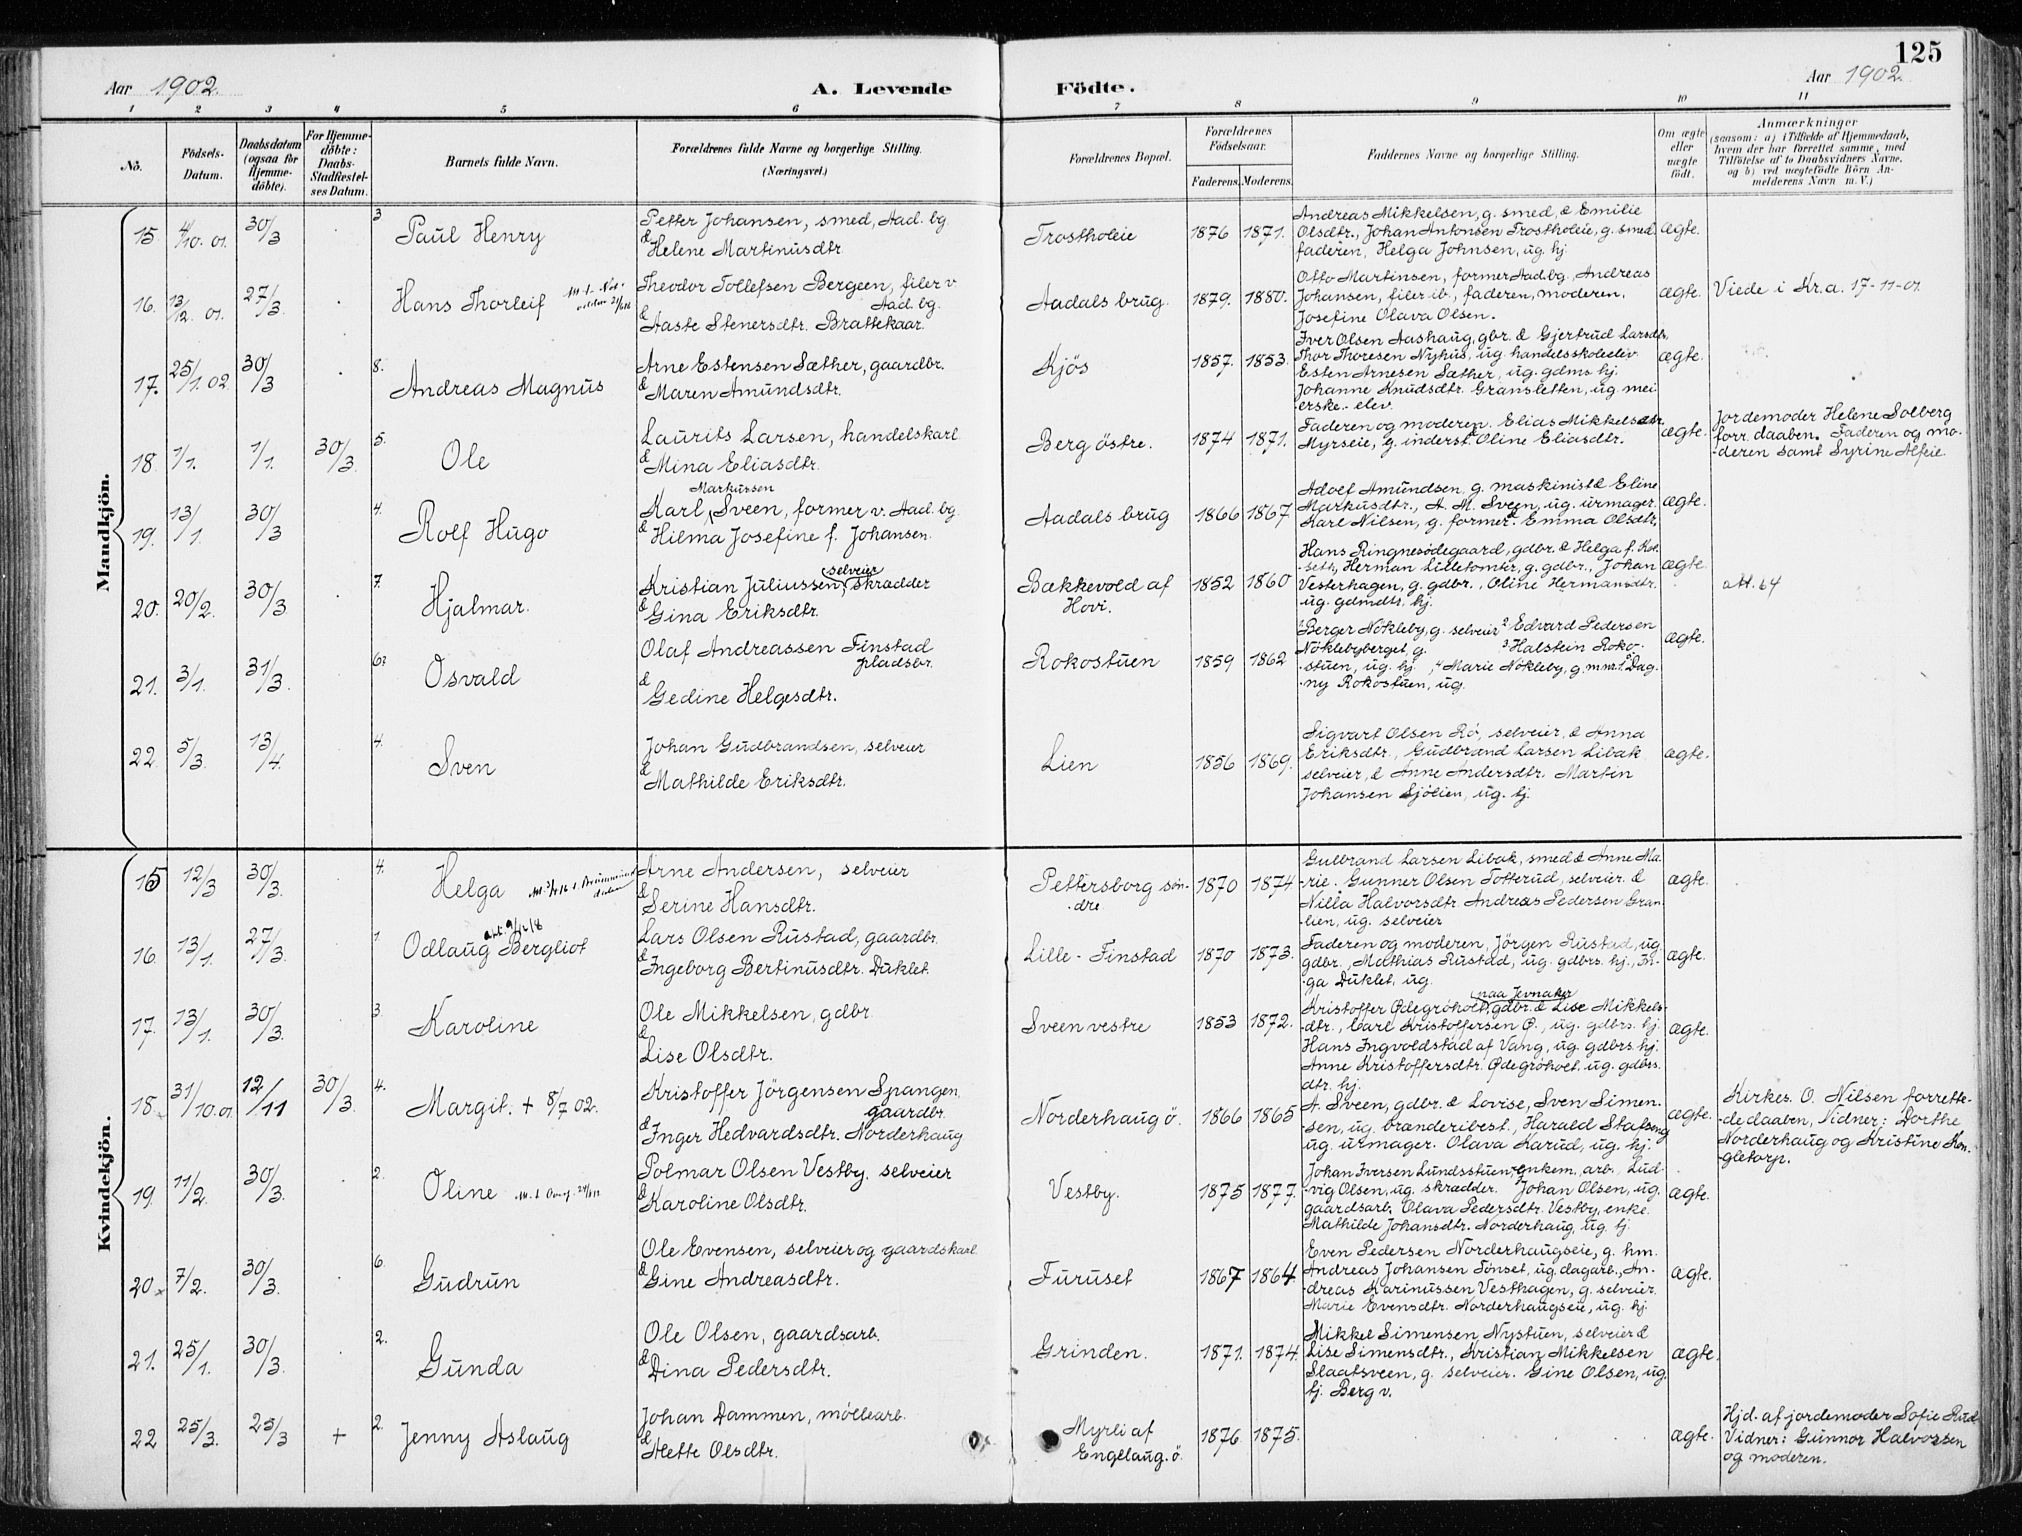 125
Aar 1902. A. Levende Födte. Aar 1902.
1 2 3 4 5 6 7 8 9 10 11
No. Födsels-Datum. Daabsdatum (ogsaa for Hjemme-döbte). For Hjemme-döbte: Daabs-Stadfæstel-ses Datum. Barnets fulde Navn. Forældrenes fulde Navne og borgerlige Stilling. (Næringsvei.) Forældrenes Bopæl. Forældrenes Födselsaar. Faderens. Moderens. Faddernes Navne og borgerlige Stilling. Om ægte eller uægte födt. Anmærkninger (saasom: a) i Tilfælde af Hjemmedaab, hvem der har forrettet samme, med Tilföielse af to Daabsvidners Navne, og b) ved uægtefödte Börn An-melderens Navn m. V.)
Mandkjön.
15. 4/10. 01. 30/3 3 Paul Henry
Petter Johansen, smed, Aad. bg
& Helene Martinusdtr.
Trostholeie 1876 1871.
Andreas Mikkelsen, g. smed, & Emilie
Olsdtr., Johan Antonsen Trostholeie, g. smed,
faderen, Helga Johnsen, ug. hj.
ægte.
16. 13/12. 01. 27/3. Hans Thorleif
Theodor Tollefsen Bergeen, filer v
Aad. bg.
& Aaste Stenersdtr. Brattekaar.
Aadals brug. 1879. 1880.
Otto Martinsen, former Aad. bg., Andreas
Johansen, filer ib., faderen, moderen,
Josefine Olava Olsen.
ægte. Viede i Kr.a. 17-11-01
17. 25/1. 02 30/3 8. Andreas Magnus
Arne Estensen Sæther, gaardbr.
& Maren Amundsdtr.
Kjös 1857. 1853.
Iver Olsen Aashaug, gbr. & Gjertrud Larsdtr,
Thor Thoresen Nyhus, ug. handelsskoleelev.
Esten Arnesen Sæther, ug. gdms hj.
Johanne Knudsdtr. Gransletten, ug. mei-
erske.- elev.
ægte.
18. 1/1. 1/1. 30/3. 5. Ole
Laurits Larsen, handelskarl
& Mina Eliasdtr.
Berg östre. 1874 1871.
Faderen og moderen. Elias Mikkelsen
Myrseie, g. inderst & Oline Eliasdtr.
ægte.
Jordemoder Helene Solberg
forr. daaben. Faderen og mo-
deren samt Syrine Alfeie.
19. 13/1. 30/3 4. Rolf Hugo
Markussen
Karl Sveen, former v. Aad. bg
& Hilma Josefine f. Johansen.
Aadals brug 1866 1867
Adolf Amundsen, g. maskinist & Eline
Markusdtr., A. M. Sveen, ug. urmager.
Karl Nilsen, g. former & Emma Olsdtr.
ægte.
20. 20/2. 30/3 7. Hjalmar.
Kristian Juliussen, selveier skrædder
& Gina Eriksdtr.
Bækkevold af
Hovi.
1852 1860
Hans Ringnesödegaard, gdbr. & Helga f. Kor-
seth, Herman Lilletomter, g. gdbr., Johan
Vesterhagen, g. gdbr., Oline Hermansdtr.
ug. gdmdtr. hj.
ægte. att. 64
21. 3/1. 31/3. 6. Osvald
Olaf Andreassen Finstad
pladsbr.
& Gedine Helgesdtr.
Rokostuen 1859 1862
1 Berger Nökleby, g. selveier 2 Edvard Pedersen
Nöklebyberget, g. 3 Halstein Roko-
stuen, ug. hj., 4 Marie Nökleby, g. m. nr. 1. Dag-
ny Rokostuen, ug.
ægte.
22. 5/3. 13/4. 4. Sven
Johan Gudbrandsen, selveier
& Mathilde Eriksdtr.
Lien 1856 1869.
Sigvart Olsen Rö, selveier, & Anna
Eriksdtr., Gudbrand Larsen Libak
selveier, & Anne Andersdtr. Martin
Johansen Sjölien, ug. hj.
ægte.
Kvindekjön.
15 12/3 30/3. 4. Helga
Arne Andersen, selveier
& Serine Hansdtr.
Pettersborg sön-
dre
1870 1874
Gulbrand Larsen Libak, smed & Anne Ma-
rie. Gunner Olsen Totterud, selveier. &
Nilla Halvorsdtr. Andreas Pedersen Gran-
lien, ug. selveier
ægte.
16. 13/1. 27/3. 1. Odlaug Bergliot
Lars Olsen Rustad, gaardbr.
& Ingeborg Bertinusdtr. Duklet.
Lille-Finstad 1870 1873.
Faderen og moderen, Jörgen Rustad, ug.
gdbr., Mathias Rustad, ug. gdbrs. hj., In-
ga Duklet, ug.
ægte.
17. 13/1. 30/3. 3. Karoline
Ole Mikkelsen, gdbr
& Lise Olsdtr.
Sveen vestre 1853 1872.
paa Jevnaker
Kristoffer Ödegröholt, gdbr. & Lise Mikkels-
dtr., Carl Kristoffersen Ö., ug. gdbrs. hj.
Hans Ingvoldstad af Vang, ug. gdbrs. hj.
Anne Kristoffersdtr. Ödegröholt, ug. gdbrs.
dtr. hj.
ægte.
18. 31/10. 01 12/11 30/3. 4. Margit. + 8/7 02.
Kristoffer Jörgensen Spangen,
gaardbr.
& Inger Hedvardsdtr. Norderhaug
Norderhaug ö. 1866 1865
A. Sveen, gdbr. & Lovise, Sven Simen-
sen, ug. brænderibest., Harald Stafseng
ug. urmager. Olava Karud, ug. hj.
ægte.
Kirkes. O. Nilsen forrette-
de daaben, Vidner: Dorthe
Norderhaug og Kristine Kon-
gletorp.
19. 11/2. 30/3. 2. Oline
Polmar Olsen Vestby. selveier
& Karoline Olsdtr.
Vestby. 1875 1877.
Johan Iversen Lundsstuen, enkem., arb., Lud-
vig Olsen, ug. skrædder. Johan Olsen, ug.
gaardsarb. Olava Pedersdtr. Vestby, enke.
Mathilde Johansdtr. Norderhaug, ug. hj.
ægte.
20. 7/2. 30/3. 6. Gudrun
Ole Evensen, selveier og gaardskarl
& Gine Andreasdtr.
Furuset 1867 1864
Even Pedersen Norderhaugseie, g. hm.
Andreas Johansen Tönset, ug. dagarb., An-
dreas Karinussen Vesthagen, g. selveier.
Marie Evensdtr. Norderhaugseie, ug. hj.
ægte.
21. 25/1. 30/3. 2. Gunda
Ole Olsen, gaardsarb.
& Dina Pedersdtr.
Grinden. 1871. 1874.
Mikkel Simensen Nystuen, selveier &
Lise Simensdtr., Kristian Mikkelsen
Slaatsveen, g. selveier. Gine Olsen, ug.
hj. Berg v.
ægte.
22 25/3. 25/3 + 2. Jenny Aslaug
Johan Dammen, möllearb.
& Mette Olsdtr.
Myrli af
Englaug. ö.
1876 1875.
ægte.
Hjd. af jordemoder Sofie Rud.
Vidner: Gunnor Halvorsen
og moderen.